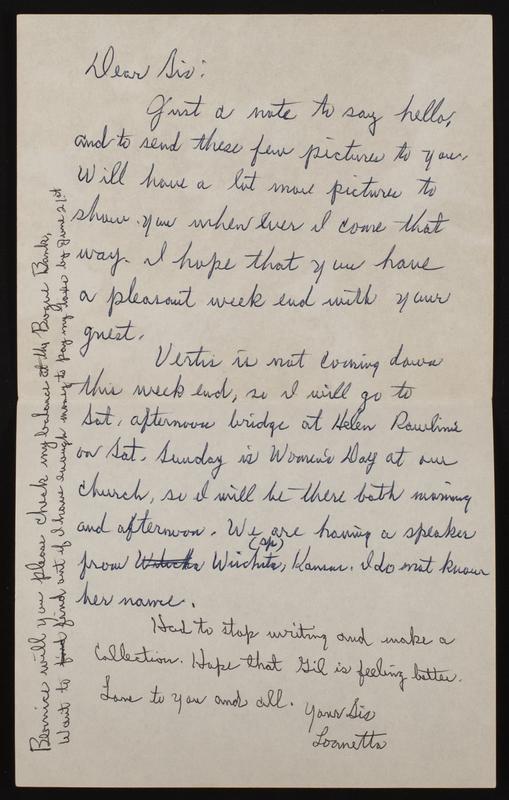 Dear Sis:
Just a note to say hello,
and to send these few pictures to you.
Will have a lot more pictures to
show you when ever I come that
way. I hope that you have
a pleasant week end with your
guest.
Vertis is not coming down
this week end, so I will go to
Sat. afternoon bridge at Helen Rawlins
on Sat. Sunday is Women's Day at our
church, so I will be there both morning
and afternoon. We are having a speaker
(sp)
from Wichita, Kansas. I do not know
her name.
Had to stop writing and make a
Collection. Hope that Gil is feeling better.
Love to you and all.
Your Sis
Loanetta
Bernice will you please check my balance at the Bogue Bank,
Want to find out if I have enough money to pay my taxes by June 21st